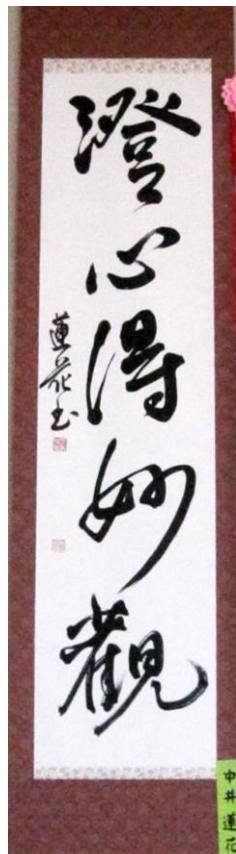 澄心得妙觀
蓮花書
中井蓮花